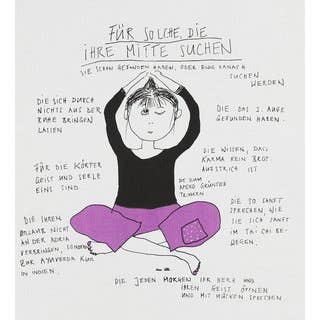 FÜR SOLCHE, DIE
IHRE MITTE SUCHEN
SIE SCHON GEFUNDEN HABEN, ODER BLOSS DANACH
SUCHEN
WERDEN
DIE SICH DURCH
NICHTS AUS DER
RUHE BRINGEN
LASSEN
DIE DAS 3. AUGE
GEFUNDEN HABEN.
FÜR DIE KÖRPER
GEIST UND SEELE
EINS SIND
DIE WISSEN, DASS
KARMA KEIN BROT
AUFSTRICH IST
DIE ZUM
APERO GRÜNTEE
TRINKEN
DIE IHREN
URLAUB NICHT
AN DER ADRIA
VERBRINGEN, SONDERN
ZUR AYURVEDA KUR
IN INDIEN.
DIE SO SANFT
SPRECHEN, WIE
SIE SICH SANFT
IM TAI CHI BE-
WEGEN.
DIE JEDEN MORGEN IHR HERZ UND
IHREN GEIST ÖFFNEN
UND MIT MÜCKEN SPRECHEN